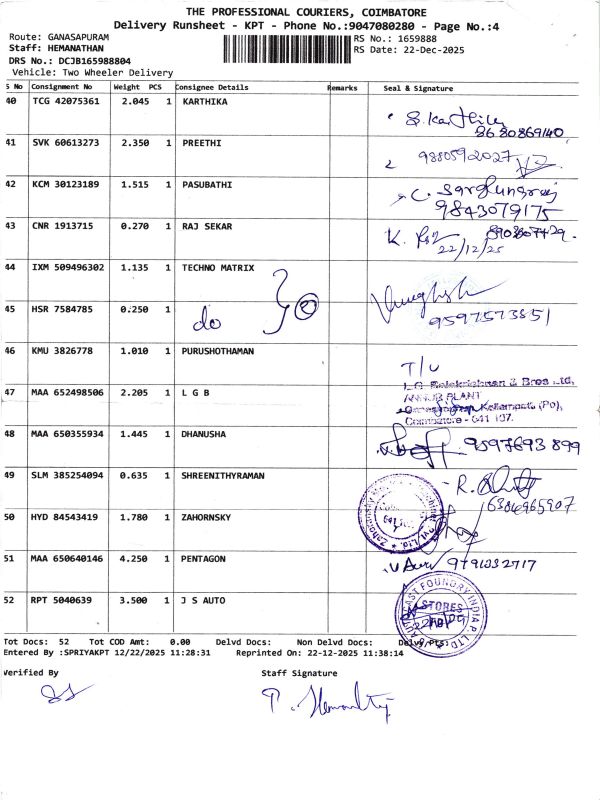 THE PROFESSIONAL COURIERS, COIMBATORE
Delivery Runsheet - KPT - Phone No.:9047080280 - Page No.:4
Route: GANASAPURAM
RS No.: 1659888
Staff: HEMANATHAN
RS Date: 22-Dec-2025
DRS No.: DCJB165988804
Vehicle: Two Wheeler Delivery
S No Consignment No Weight PCS Consignee Details Remarks Seal & Signature
40 TCG 42075361 2.045 1 KARTHIKA
S. Karthika
8680869140
41 SVK 60613273 2.350 1 PREETHI
9880592027
42 KCM 30123189 1.515 1 PASUBATHI
C.
9843079175
43 CNR 1913715 0.270 1 RAJ SEKAR
K.
22/12/25
44 IXM 509496302 1.135 1 TECHNO MATRIX
45 HSR 7584785 0.250 1 do
9597573851
46 KMU 3826778 1.010 1 PURUSHOTHAMAN
T/U
47 MAA 652498506 2.205 1 L G B
L.G. Balakrishnan & Bros Ltd,
ANNUR PLANT
Kellampate (Po),
Coimbatore - 641 107.
48 MAA 650355934 1.445 1 DHANUSHA
9597693899
49 SLM 385254094 0.635 1 SHREENITHYRAMAN
R.
6384965907
50 HYD 84543419 1.780 1 ZAHORNSKY
51 MAA 650640146 4.250 1 PENTAGON
9791032717
52 RPT 5040639 3.500 1 J S AUTO
STORES
Tot Docs: 52 Tot COD Amt: 0.00 Delvd Docs: Non Delvd Docs: Delvy Pts:
Entered By :SPRIYAKPT 12/22/2025 11:28:31 Reprinted On: 22-12-2025 11:38:14
Verified By
Staff Signature